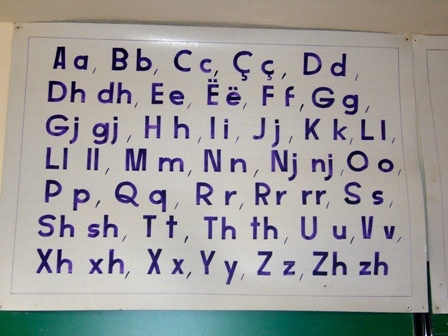 Aa, Bb, Cc, Çç, Dd,
Dh dh, Ee, Ëë, Ff, Gg,
Gj gj, Hh, Ii, Jj, Kk, Ll,
Ll ll, Mm, Nn, Nj nj, Oo,
Pp, Qq, Rr, Rr rr, Ss,
Sh sh, Tt, Th th, Uu, Vv,
Xh xh, Xx, Yy, Zz, Zh zh